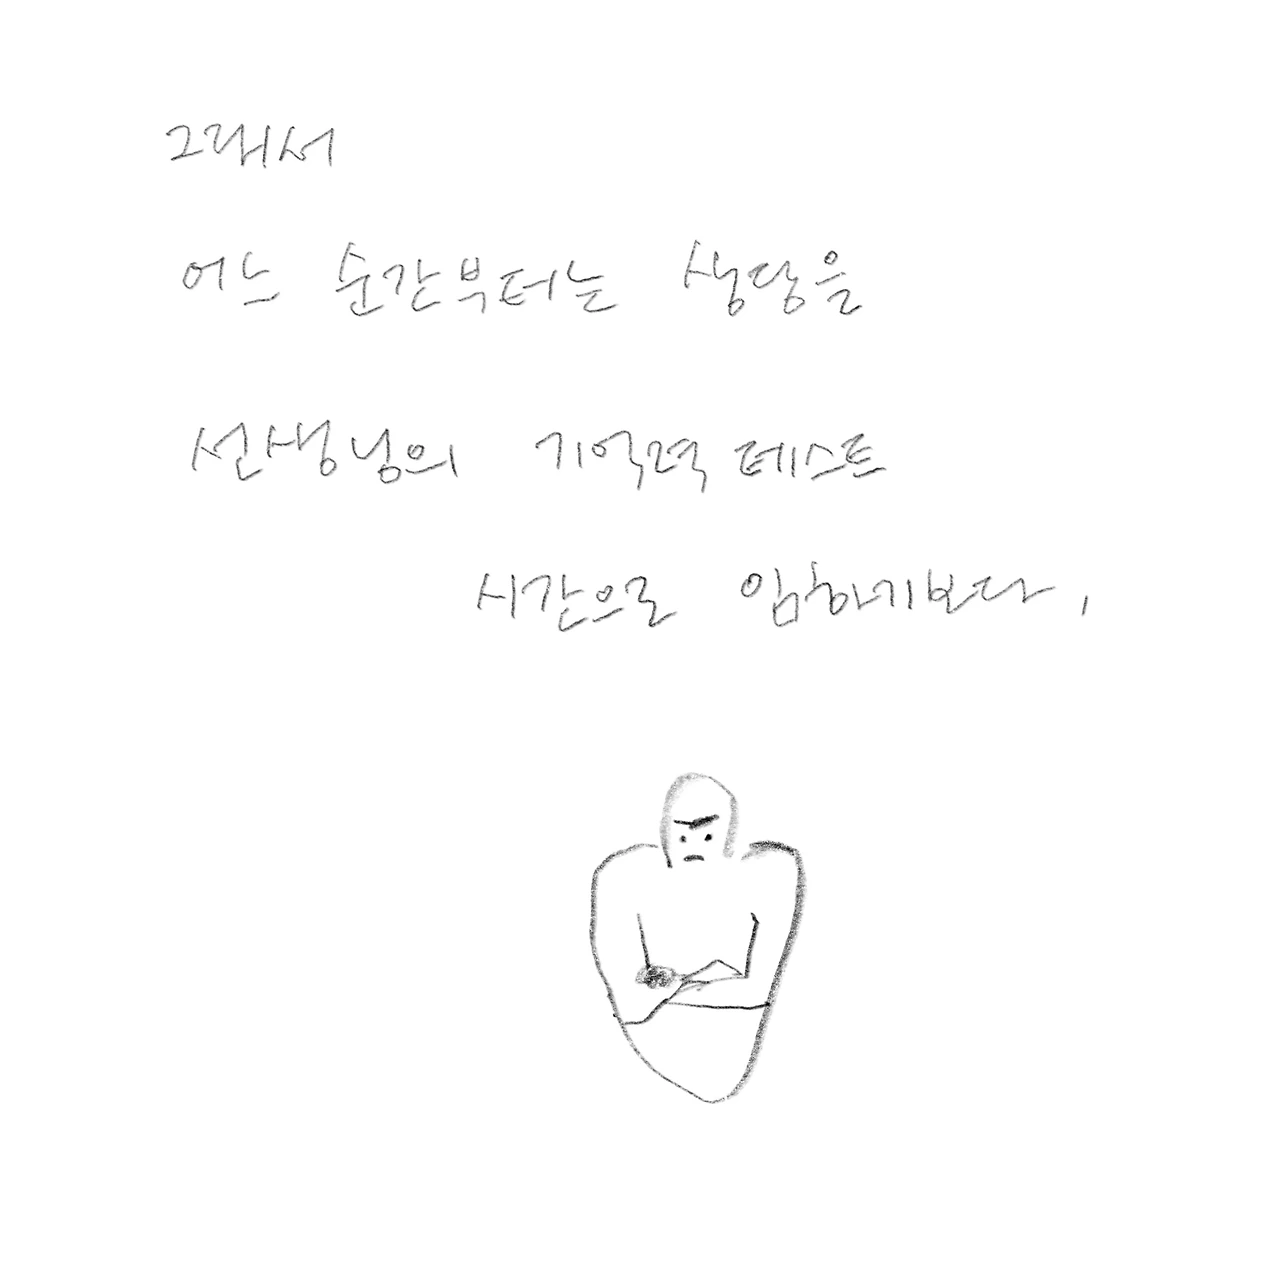 그래서
어느 순간부터는 상담을
선생님의 기억력 테스트
시간으로 임하기보다,